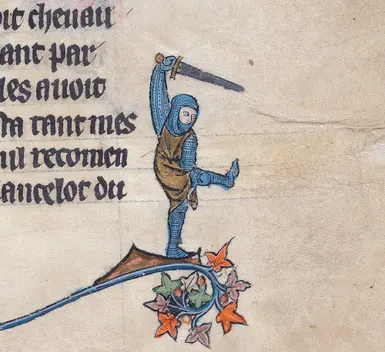 oit cheuau
ant par
les auoit
sta tant mes
nil recomen
ancelot du